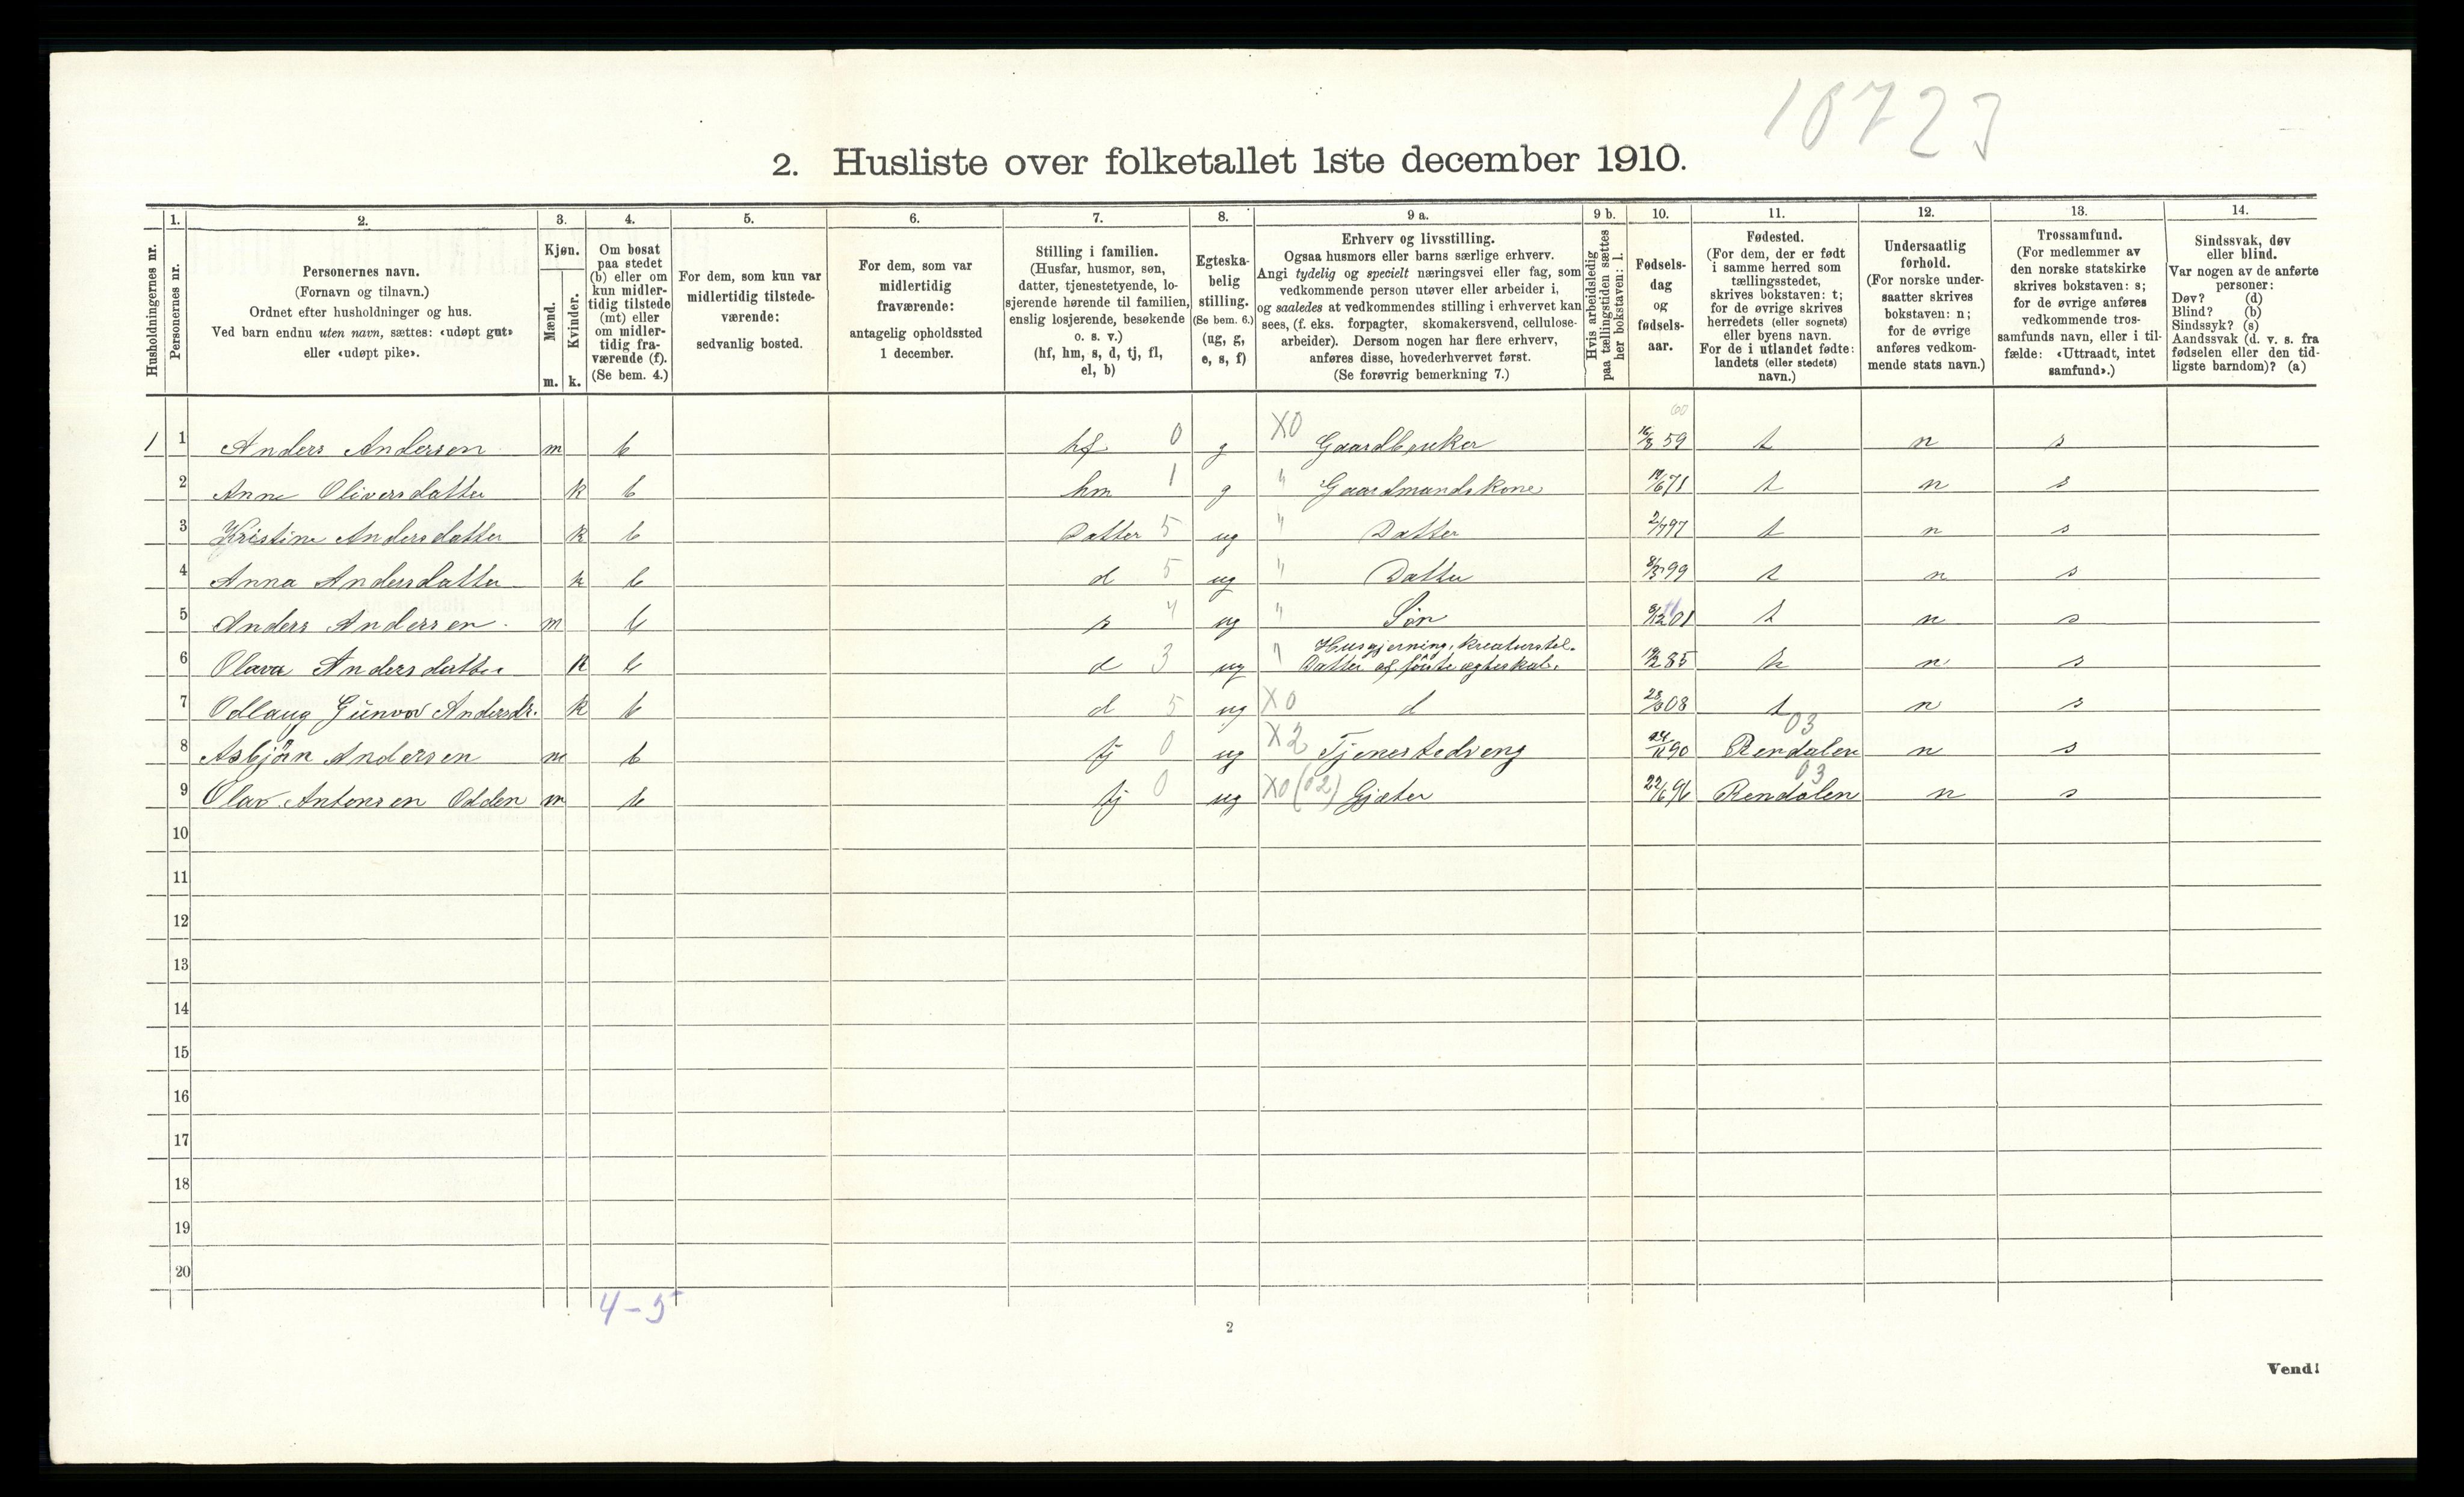 10723
2. Husliste over folketallet 1ste december 1910.
1. 2. 3. 4. 5. 6. 7. 8. 9 a. 9 b. 10. 11. 12. 13. 14.
Husholdningernes nr.
Personernes nr.
Personernes navn.
(Fornavn og tilnavn.)
Ordnet efter husholdninger og hus.
Ved barn endnu uten navn, sættes: «udøpt gut»
eller «udøpt pike».
Kjøn.
Mænd.
Kvinder.
m. k.
Om bosat
paa stedet
(b) eller om
kun midler-
tidig tilstede
(mt) eller
om midler-
tidig fra-
værende (f).
(Se bem. 4.)
For dem, som kun var
midlertidig tilstede-
værende:
sedvanlig bosted.
For dem, som var
midlertidig
fraværende:
antagelig opholdssted
1 december.
Stilling i familien.
(Husfar, husmor, søn,
datter, tjenestetyende, lo-
sjerende hørende til familien,
enslig losjerende, besøkende
o. s. v.)
(hf, hm, s, d, tj, fl,
el, b)
Egteska-
belig
stilling.
(Se bem. 6.)
(ug, g,
e, s, f)
Erhverv og livsstilling.
Ogsaa husmors eller barns særlige erhverv.
Angi tydelig og specielt næringsvei eller fag, som
vedkommende person utøver eller arbeider i,
og saaledes at vedkommendes stilling i erhvervet kan
sees, (f. eks. forpagter, skomakersvend, cellulose-
arbeider). Dersom nogen har flere erhverv,
anføres disse, hovederhvervet først.
(Se forøvrig bemerkning 7.)
Hvis arbeidsledig
paa tællingstiden sættes
her bokstaven: l.
Fødsels-
dag
og
fødsels-
aar.
Fødested.
(For dem, der er født
i samme herred som
tællingsstedet,
skrives bokstaven: t;
for de øvrige skrives
herredets (eller sognets)
eller byens navn.
For de i utlandet fødte:
landets (eller stedets)
navn.)
Undersaatlig
forhold.
(For norske under-
saatter skrives
bokstaven: n;
for de øvrige
anføres vedkom-
mende stats navn.)
Trossamfund.
(For medlemmer av
den norske statskirke
skrives bokstaven: s;
for de øvrige anføres
vedkommende tros-
samfunds navn, eller i til-
fælde: «Uttraadt, intet
samfund».)
Sindssvak, døv
eller blind.
Var nogen av de anførte
personer:
Døv? (d)
Blind? (b)
Sindssyk? (s)
Aandssvak (d. v. s. fra
fødselen eller den tid-
ligste barndom)? (a)
60
1 1 Anders Andersen m b hf 0 g X0 Gaardbruker 16/8 59 t n s
2 Anne Oliversdatter k b hm 1 g " Gaardmandskone 71 t n s
3 Kristine Andersdatter k b Datter 5 ug " Datter 2/7 97 t n s
4 Anna Andersdatter k b d 5 ug " Datter 99 t n s
5 Anders Andersen m b s 4 ug " Søn 01 t n s
Husgjerning, kreaturstel.
6 Olava Andersdatter k b d 3 ug " Datter af første ægteskab. 85 t n s
7 Odlaug Gunvor Andersdt. k b d 5 ug X0 d 08 t n s
03
8 Asbjørn Andersen m b tj 0 ug X2 Tjenestedreng 24/11 90 Rendalen n s
03
9 Olav Antonsen Odden m b tj 0 ug X0 (02) Gjæter 22/6 96 Rendalen n s
10
11
12
13
14
15
16
17
18
19
20
4-5
2
Vend!